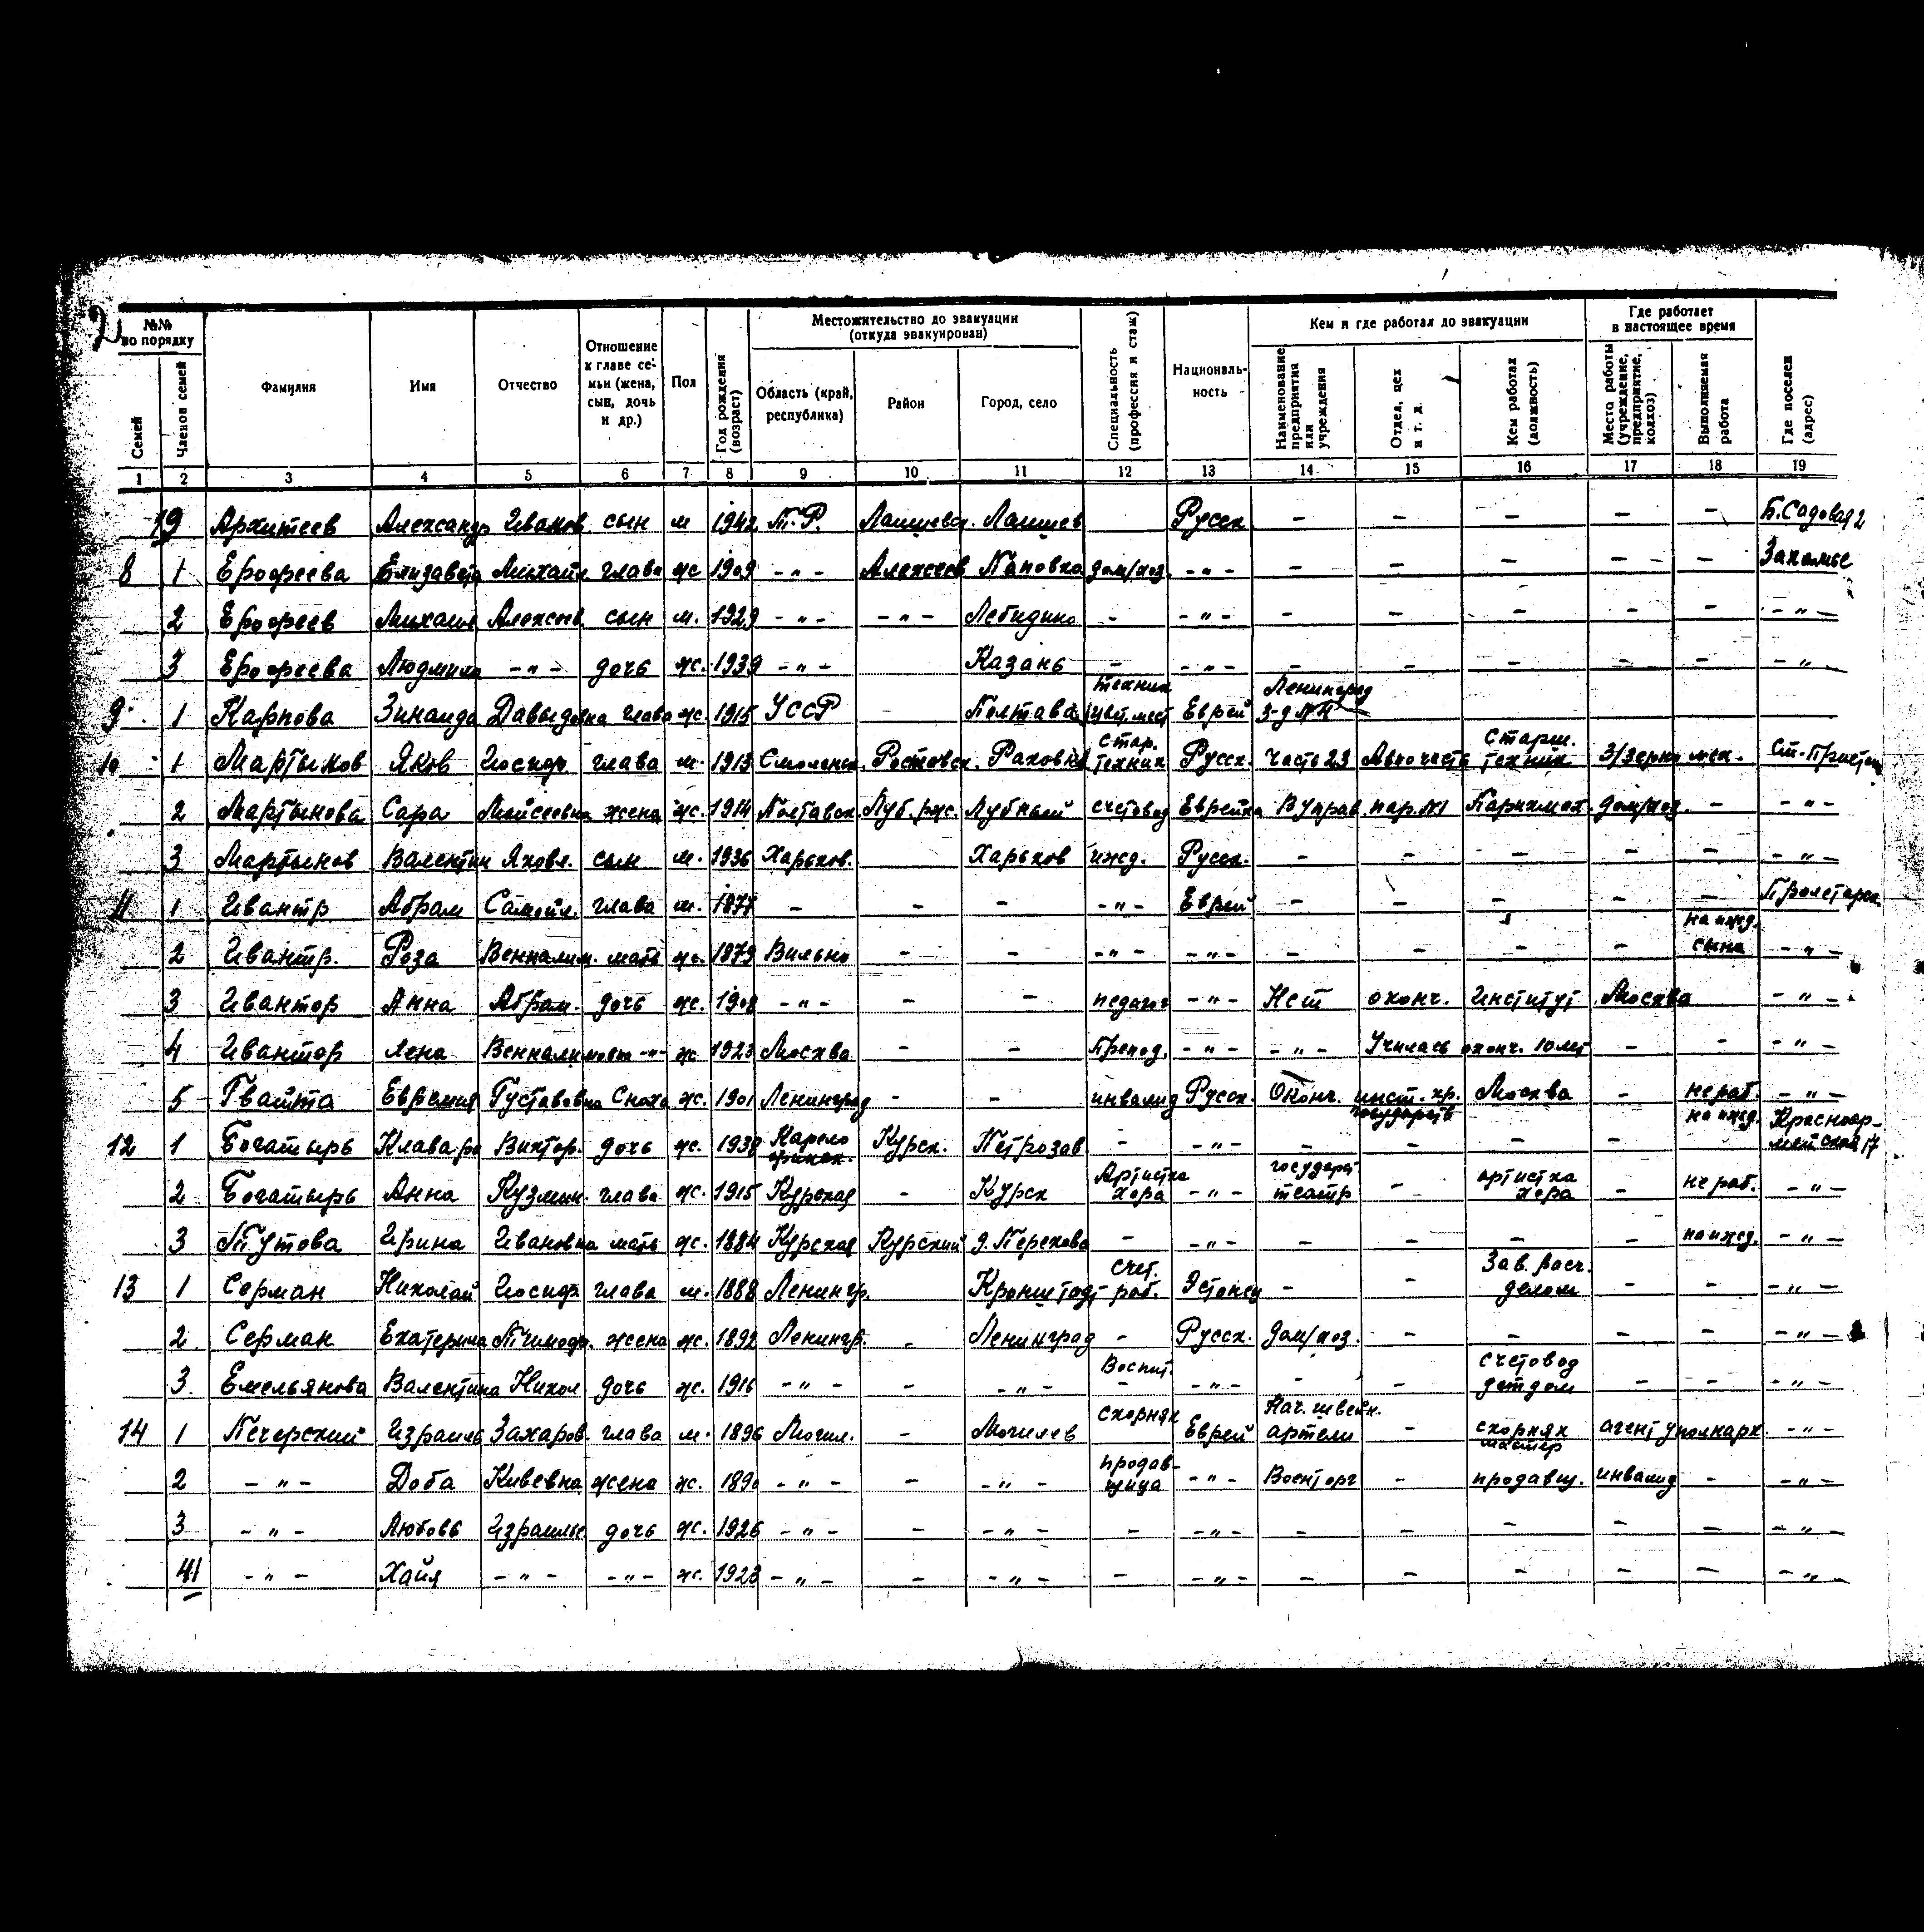 2
№№ по порядку
Семей
Членов семей
Фамилия
Имя
Отчество
Отношение к главе се-мьи (жена, сын, дочь и др.)
Пол
Год рождения (возраст)
Местожительство до эвакуации (откуда эвакуирован)
Область (край, республика)
Район
Город, село
Специальность (профессия и стаж)
Националь-ность
Кем и где работал до эвакуации
Наименование предприятия или учреждения
Отдел, цех и т. д.
Кем работал (должность)
Где работает в настоящее время
Место работы (учреждение, предприятие, колхоз)
Выполняемая работа
Где поселен (адрес)
1 2 3 4 5 6 7 8 9 10 11 12 13 14 15 16 17 18 19
19 Архитеев Александр Иванов. сын м 1942 Т.Р. Лаишевск. Лаишев Русск — — — — — Б.Садовая 2
8 1 Ерофеева Елизавета Михайл глава ж 1909 -"- Алексеев дом/хоз. -"- — — — — —
2 Ерофеев Михаил Алексеев. сын м. 1929 -"- -"- Лебидино - -"- — — — — — -"-
3 Ерофеева Людмила -"- дочь ж. 1939 -"- Казань — -"- — — — — — -"-
9 1 Карпова Зинаида Давыдовна глава ж. 1915 УССР — Полтава техник цвет. мет Еврей Ленинград з-д
10 1 Мартынов Яков Иосиф. глава м. 1913 Смоленск. Ростовск. стар. техник Русск. Часть 23 Авточасть старш. техник Ст. Пристань
2 Мартынова Сара Моисеевна жена ж. 1914 Полтавск Луб. рж. Лубный счетовод Еврейка В управ. пар. №1 Парикмах. дом/хоз. — -"-
3 Мартынов Валентин Яковл. сын м. 1936 Харьков. Харьков ижд. Русск. — — — — — -"-
11 1 Ивантр Абрам Самойл. глава м. 1877 — — — -"- Еврей — — — — —
2 Ивантр. Роза Венналим. мать ж. 1879 Вильно — — -"- -"- — — — — на ижд. сына -"-
3 Ивантор Анна Абрам. дочь ж. 1908 -"- — — педагог -"- Нет оконч. Институт Москва -"-
4 Ивантор Лена -"- ж 1923 Москва — — Препод. -"- -"- Училась оконч. 10 лет — - -"-
5 Гвайта Евгения Густавовна Сноха ж. 1901 Ленинград — — инвалид Русск. Оконч. инст. государств Москва — не раб. -"-
12 1 Богатырь Виктор. дочь ж. 1938 Карело финск. Курск. Петрозав — -"- — — — — на ижд. Красноар-мейская 17
2 Богатырь Анна Кузмин. глава ж. 1915 Курская — Курск Артистка хора -"- государст. театр — артистка хора — не раб. -"-
3 Тутова Ирина Ивановна мать ж. 1884 Курская Курский д. Перехова — -"- — — — — на ижд. -"-
13 1 Серман Николай Иосиф глава м. 1888 Ленингр. Кронштадт Счет. раб. Эстонец — — Зав. расч. делом — — -"-
2 Серман Екатерина Тимоф. жена ж. 1892 Ленингр. - Ленинград — Русск. дом/хоз. — — — — -"-
3 Емельянова Валентина Никол дочь ж. 1916 -"- — -"- Воспит. -"- — — счетовод детдом — — -"-
14 1 Печерский Израиль Захаров. глава м. 1896 Могил. — Могилев скорняк Еврей Нач. швейн. артели — скорняк мастер агент -"-
2 -"- Доба Кивевна жена ж. 1890 -"- — -"- продав-щица -"- Военторг — продавщ. инвалид — -"-
3 -"- Любовь Израильс дочь ж. 1926 -"- — -"- — -"- — — — — — -"-
41 -"- Хайя -"- -"- ж. 1923 -"- — -"- — -"- — — — — — -"-